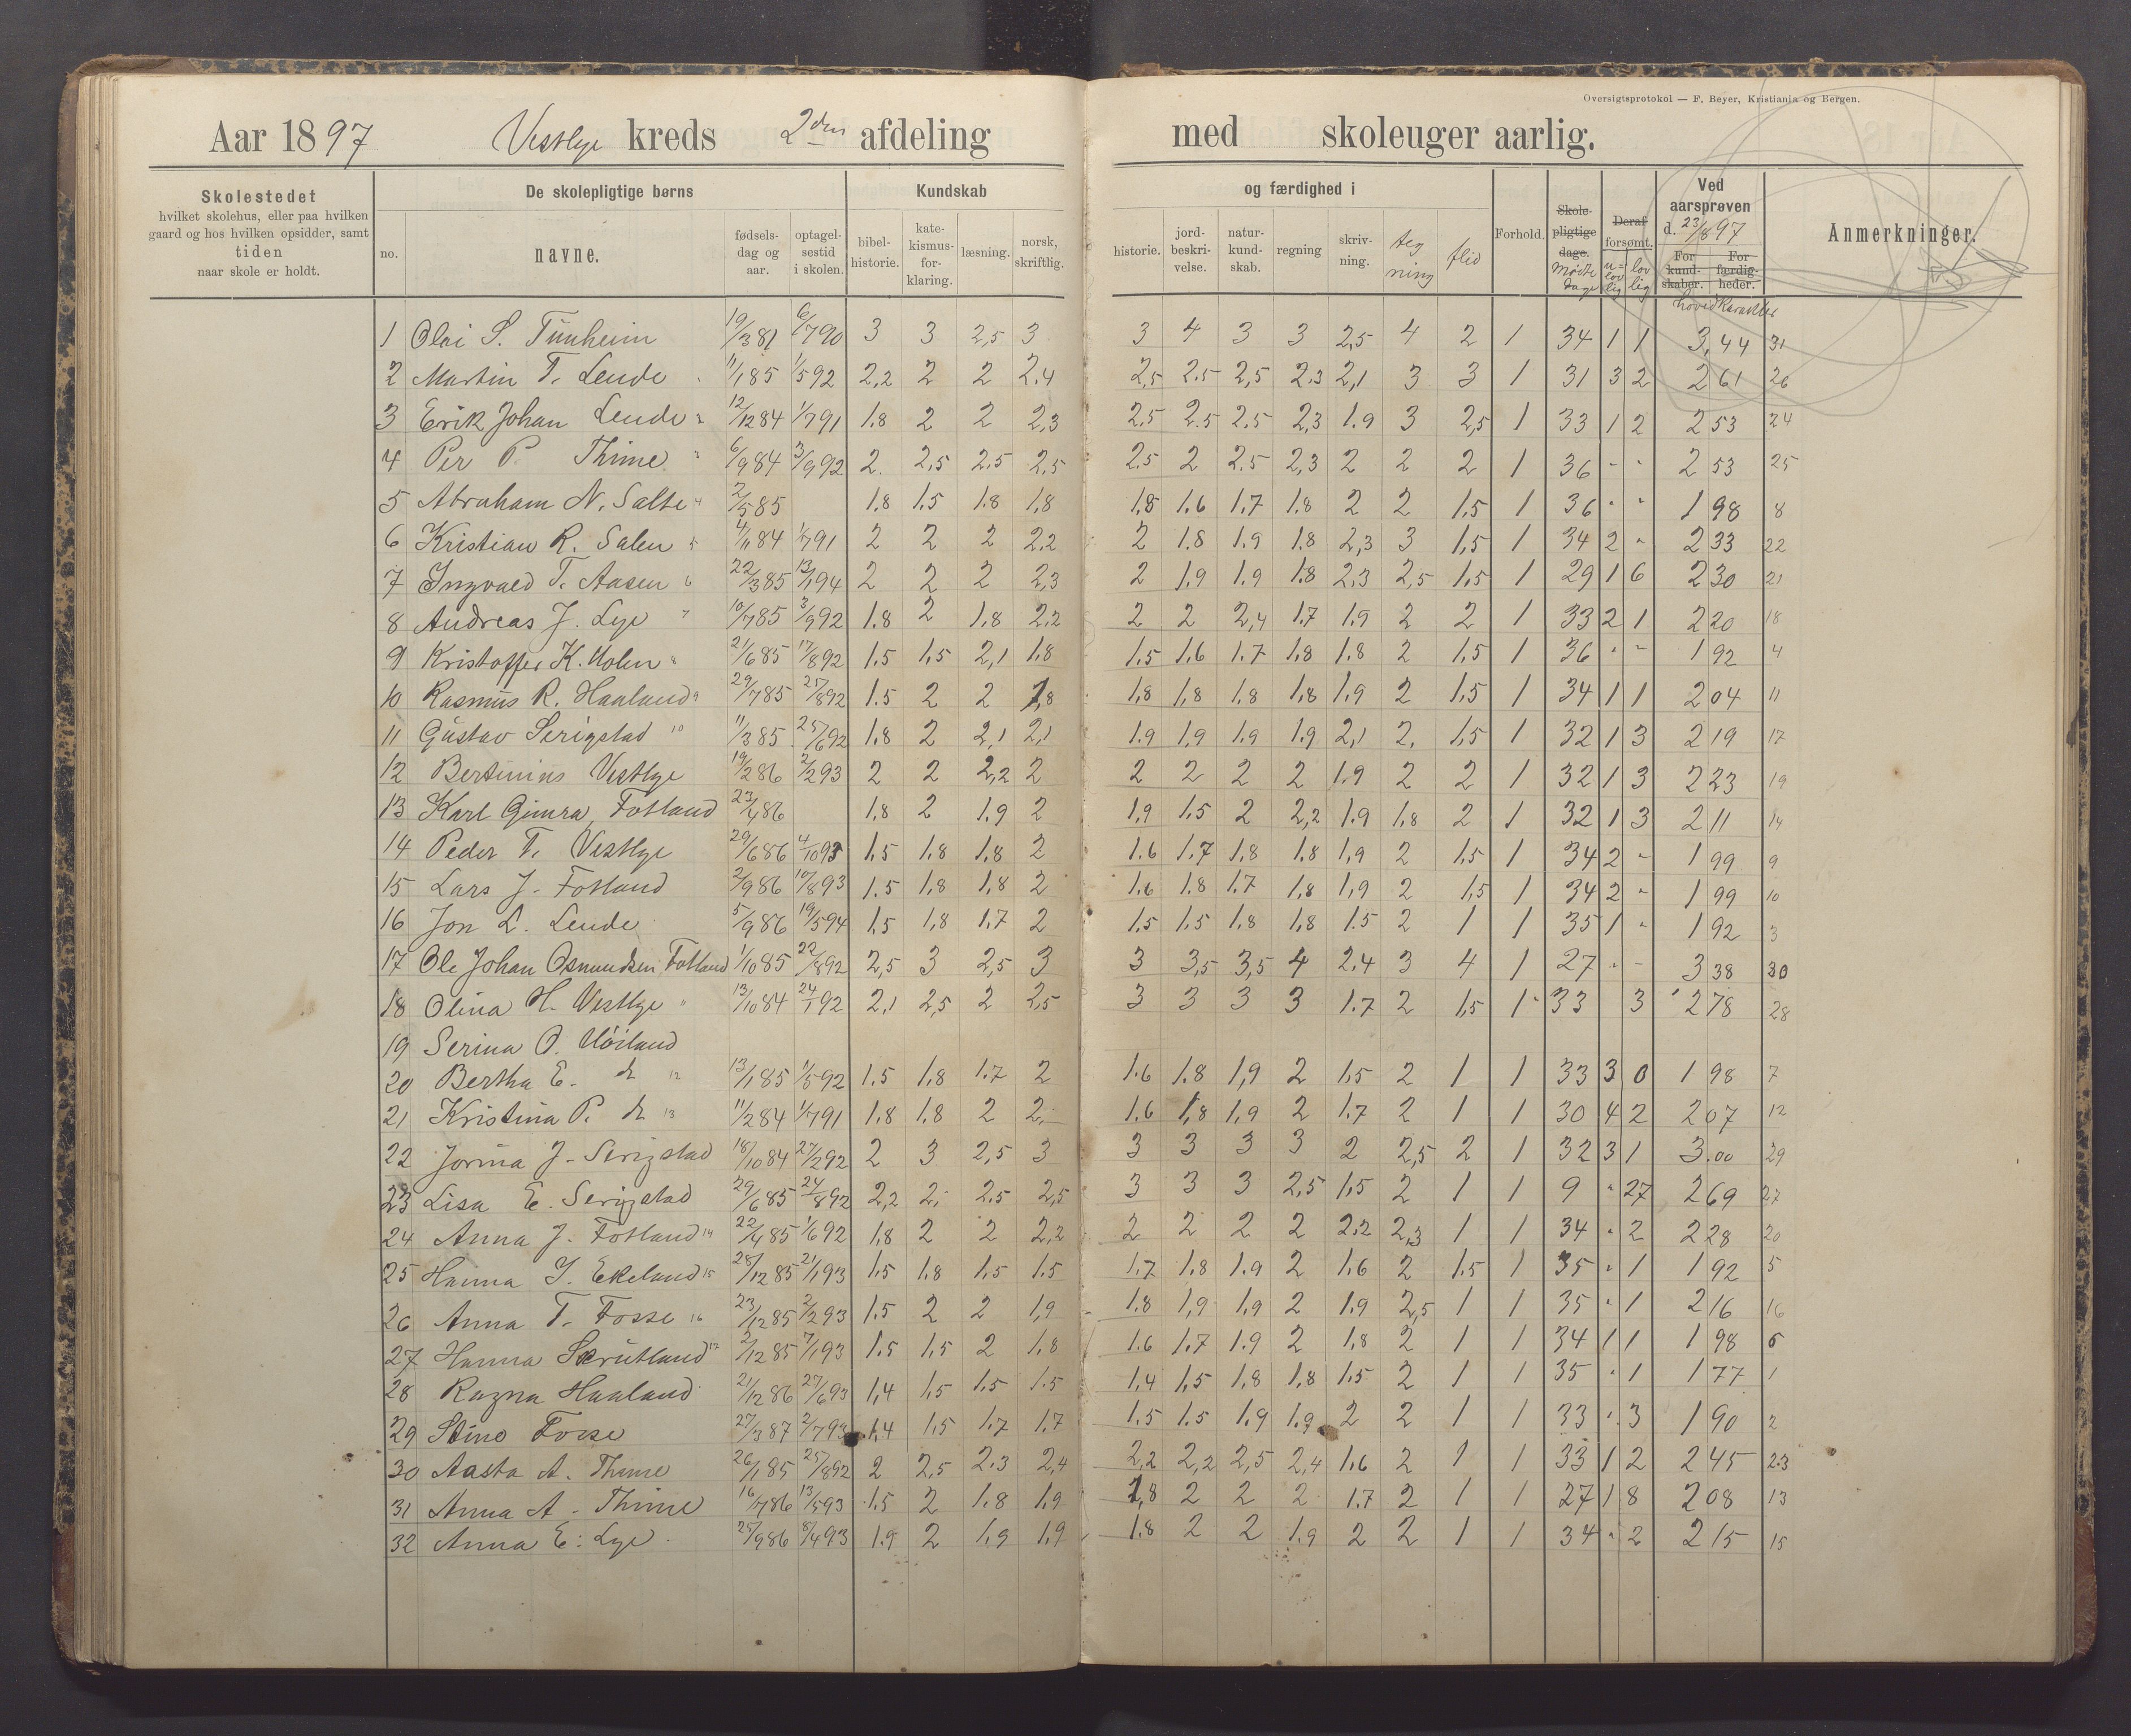 Oversigtsprotokol — F. Beyer, Kristiania og Bergen.
Aar 1897 Vestlye kreds 2den afdeling med skoleuger aarlig.
Skolestedet
hvilket skolehus, eller paa hvilken
gaard og hos hvilken opsidder, samt
tiden
naar skole er holdt.
De skolepligtige børns
Kundskab
og færdighed i
no.
navne.
fødsels-
dag og
aar.
optagel-
sestid
i skolen.
bibel-
historie.
kate-
kismus-
for-
klaring.
læsning.
norsk,
skriftlig.
historie.
jord-
beskri-
velse.
natur-
kund-
skab.
regning
skriv-
ning.
teg
ning
flid
Forhold.
Skole-
pligtige
dage.
Mødte
dage
Deraf
forsømt.
u=
lov
lig
lov
lig
Ved
aarsprøven
d. 23/8 97
For
kund-
skaber.
For
færdig-
heder.
hovedkarakter
Anmerkninger.
1 Olai S. Tunheim 19/3 81 6/7 90 3 3 2,5 3 3 4 3 3 2,5 4 2 1 34 1 1 3,44 31
2 Martin T. Lende 11/1 85 1/5 92 2,2 2 2 2.4 2,5 2.5 2,5 2.3 2,1 3 3 1 31 3 2 2 61 26
3 Erik Johan Lende 2 12/12 84 1/7 91 1.8 2 2 2,3 2.5 2.5 2.5 2,3 1.9 3 2,5 1 33 1 2 2 53 24
4 Per P. Thime 3 6/9 84 3/9 92 2. 2,5 2.5 2,5 2.5 2 2.5 2,3 2 2 2 1 36 - - 2 53 25
5 Abraham N. Salte 4 2/5 85 1.8 1.5 1.8 1,8 1,8 1.6 1.7 1.8 2 2 1.5 1 36 - - 1 98 8
6 Kristian R. Salen 5 4/11 84 1/7 91 2 2 2 2,2 2 1.8 1.9 1.8 2,3 3 1,5 1 34 2 - 2 33 22
7 Ingvald T. Aasen 6 22/3 85 13/1 94 2 2 2 2,3 2 1,9 1.9 1.8 2.3 2,5 1,5 1 29 1 6 2 30 21
8 Andreas J. Lye 7 10/7 85 3/9 92 1.8 2 1.8 2,2 2 2 2,4 1.7 1.9 2 2 1 33 2 1 2 20 18
9 Kristoffer K. Holen 8 21/6 85 17/8 92 1.5 1,5 2,1 1.8 1.5 1.6 1.7 1,8 1.8 2 1.5 1 36 - - 1 92 4
10 Rasmus R. Haaland 9 29/7 85 25/8 92 1.5 2 2 1,8 1,8 1,8 1.8 1,8 1.9 2 1,5 1 34 1 1 2 04 11
11 Gustav Serigstad 10 11/3 85 25/6 92 1.8 2 2,1 2,1 1.9 1,9 1.9 1.9 2,1 2. 1,5 1 32 1 3 2 19 17
12 Bertinius Vestlye 19/2 86 2/2 93 2 2 2,2 2 2 2 2 2 1.9 2 2 1 32 1 3 2 23 19
13 Karl Gimra, Fotland 23/4 86 1.8 2 1.9 2 1,9 1.5 2 2,2 1.9 1,8 2 1 32 1 3 2 11 14
14 Peder T. Vestlye 29/6 86 4/10 93 1,5 1.8 1.8 2 1.6 1.7 1,8 1.8 1,9 2 1,5 1 34 2 - 1 99 9
15 Lars J. Fotland 2/9 86 10/8 93 1.5 1,8 1,8 2 1.6 1.8 1.7 1,8 1,9 2 1,5 1 34 2 - 1 99 10
16 Jon L. Lende 5/9 86 19/5 94 1,5 1,8 1.7 2 1.5 1.5 1.8 1,8 1.5 2 1 1 35 1 - 1 92 3
17 Ole Johan Osmundsen Fotland 1/10 85 22/8 92 2,5 3 2,5 3 3 3,5 3,5 4 2.4 3 4 1 27 - - 3 38 30
18 Olina H. Vestlye 11 13/10 84 24/1 92 2,1 2,5 2 2,5 3 3 3 3 1.7 2 1,5 1 33 3 2 78 28
19 Serina O. Høiland
20 Bertha E. do 12 13/1 85 1/5 92 1.5 1,8 1.7 2 1.6 1.8 1,9 2 1.5 2 1 1 33 3 0 1 98 7
21 Kristina P. do 13 11/2 84 1/7 91 1.8 1.8 2 2.- 1.6 1,8 1,9 2 1.7 2 1 1 30 4 2 2 07 12
22 Jorina J. Serigstad 18/10 84 27/2 92 2 3 2,5 3 3 3 3 3 2 2,5 2 1 32 3 1 3.00 29
23 Lisa E. Serigstad 29/6 85 24/8 92 2,2 2,- 2.5 2,5 3 3 3 2,5 1,5 2 1 1 9 - 27 2 69 27
24 Anna J. Fotland 14 22/4 85 1/6 92 1,8 2 2 2,2 2 2 2 2 2.2 2,3 1 1 34 - 2 2 28 20
25 Hanna I. Ekeland 15 28/12 85 21/1 93 1.5 1,8 1,5 1.5 1.7 1.8 1.9 2 1.6 2 1.5 1 35 - 1 1 92 5
26 Anna T. Fosse 16 23/12 85 2/2 93 1.5 2 2 1,9 1.8 1,9 1,9 2 1.9 2,5 1 1 35 - 1 2 16 16
27 Hanna Skrutland 17 2/12 85 7/1 93 1.5 1,5 2 1.8 1.6 1.7 1.9 2 1,8 2 1 1 34 1 1 1 98 6
28 Ragna Haaland 21/12 86 27/6 93 1,4 1,5 1.5 1.5 1,4 1,5 1,8 1,8 1.5 2 1 1 35 - 1 1 77 1
29 Stine Fosse 27/3 87 2/7 93 1,4 1,5 1.7 1.7 1.5 1.5 1,9 1.9 2 2 1 1 33 - 3 1 90 2
30 Aasta A. Thime 26/1 85 25/8 92 2 2,5 2.3 2,4 2,2 2,2 2,5 2,4 1.6 2 1 1 33 1 2 2 45 23
31 Anna A. Thime 16/7 86 13/5 93 1.5 2 1.8 1,9 1,8 2 2 2 1.7 2 1 1 27 1 8 2 08 13
32 Anna E. Lye 25/9 86 8/4 93 1.9 2 1,9 1,9 1.8 2 2 1.9 2 2 1 1 34 - 2 2 15 15